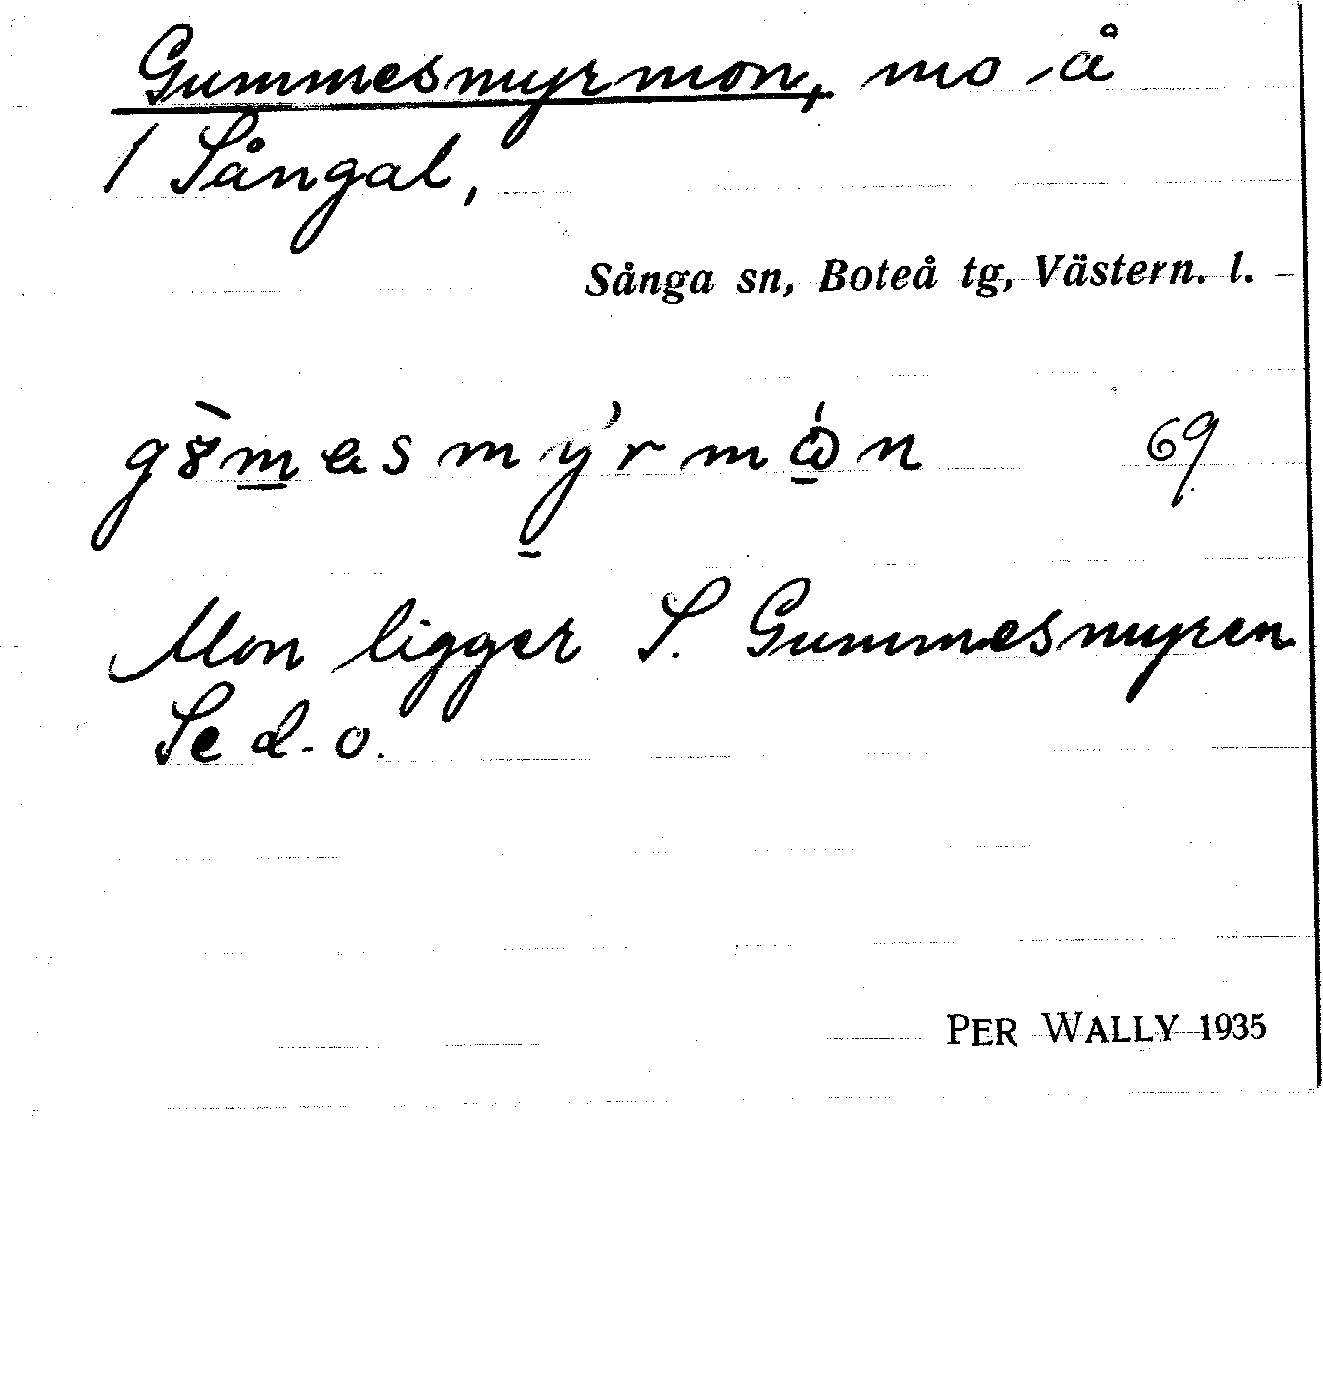 Gummesmyrmon, mo å
/ Sångal,
Sånga sn, Boteå tg, Västern. l.
69
Mon ligger S. Gummesmyren
Se d.o.
PER WALLY 1935